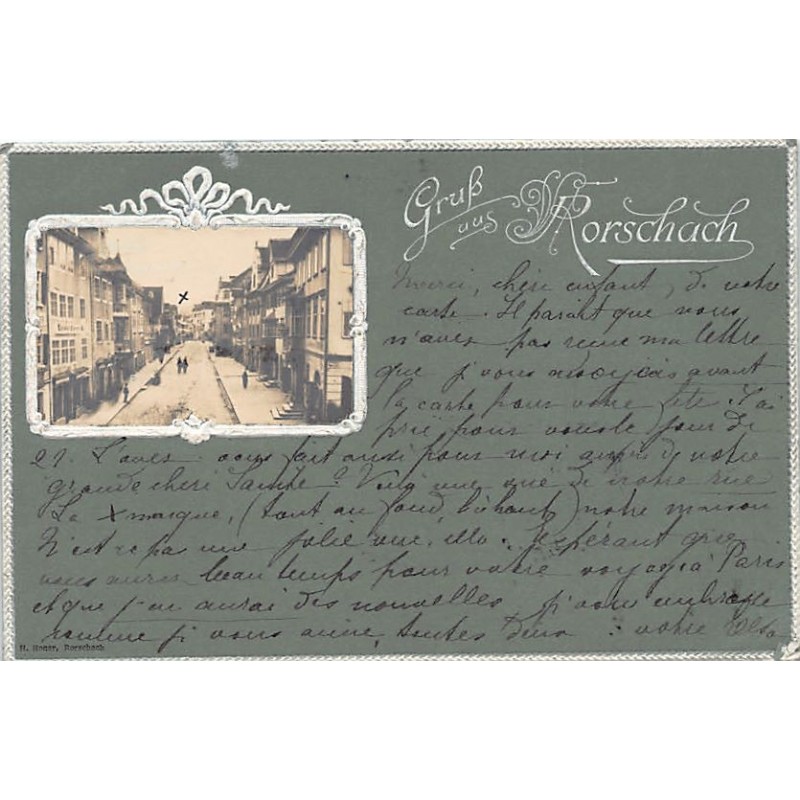 Gruß
aus Rorschach
Merci, chéri enfant, de votre
carte. Il parait que vous
n'aves pas reçue ma lettre
que j' vous avant
la carte pour votre fête J'ai
prié pour vous le jour de
21. L'aves vous fait aussi pour moi de notre
grande chéri Sainte? Voilà une vue de notre rue
La X marque, (tout au fond, ) notre maison
N'est ce pas une jolie vue, . J'espérant que
vous aures beau temps pour votre voyage à Paris
et que j'en aurai des nouvelles j' vous embrasse
comme j' vous aime, toutes deux : votre
H. , Rorschach